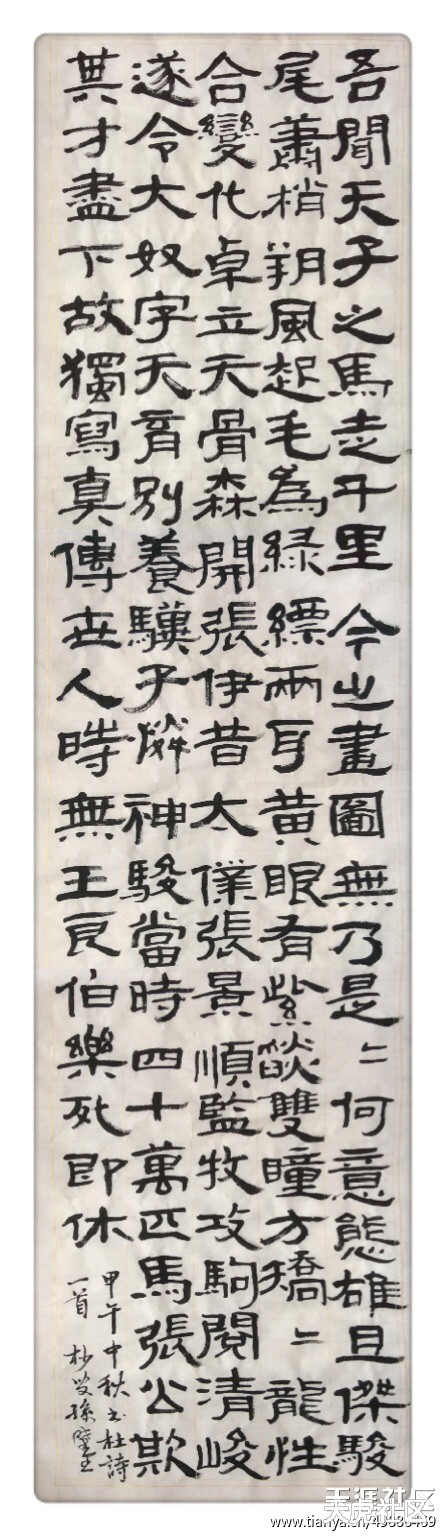 吾聞天子之馬走千里今之畫圖無乃是〻何意態雄且傑駿
尾蕭梢朔風起毛為緑縹兩耳黃眼有紫燄雙瞳方矯〻龍性
合變化卓立天骨森開張伊昔太僕張景順監牧攻駒閱清峻
遂令大奴字天育別養驥子憐神駿當時四十萬匹馬張公歎
其才盡下故獨寫真傳世人時無王良伯樂死即休
甲午中秋书杜詩
一首
天涯社区